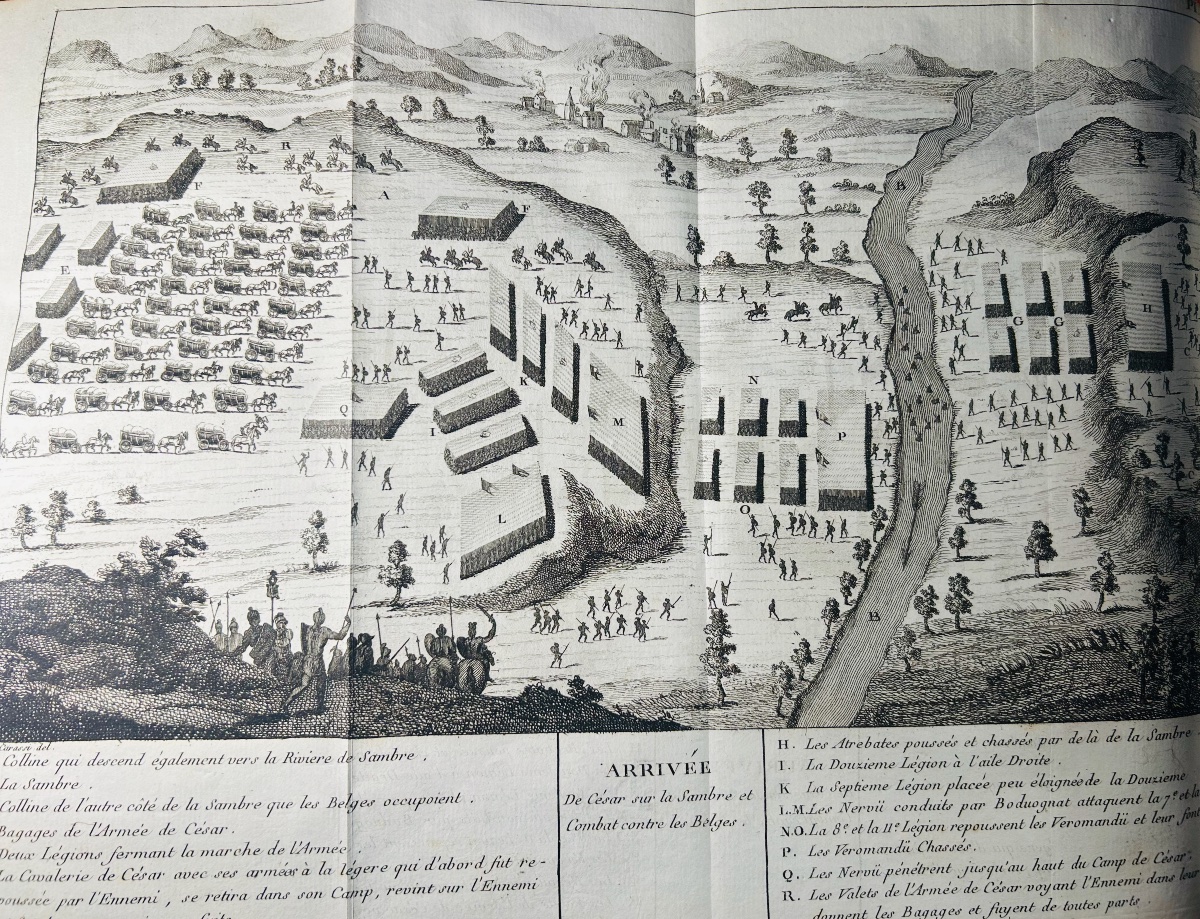 R
F
A
F
E
D
B
G G
H
C
K
Q
I
M
N
P
L
O
B
Carassi del.
Colline qui descend également vers la Riviere de Sambre.
La Sambre.
Colline de l'autre côté de la Sambre que les Belges occupoient.
Bagages de l'Armée de César.
Deux Légions fermant la marche de l'Armée.
La Cavalerie de César avec ses armées à la légere qui d'abord fut re-
poussée par l'Ennemi, se retira dans son Camp, revint sur l'Ennemi
ARRIVÉE
De César sur la Sambre et
Combat contre les Belges.
H. Les Atrebates poussés et chassés par de là de la Sambre.
I. La Douzieme Légion à l'aîle Droite.
K La Septieme Légion placée peu éloignée de la Douzieme
L.M. Les Nervii conduits par Boduognat attaquent la 7e et la
N.O. La 8e et la 11e Légion repoussent les Veromandii et leur font
P. Les Veromandii Chassés.
Q. Les Nervii pénétrent jusqu'au haut du Camp de César.
R. Les Valets de l'Armée de César voyant l'Ennemi dans leur
donnent les Bagages et fuyent de toutes parts.